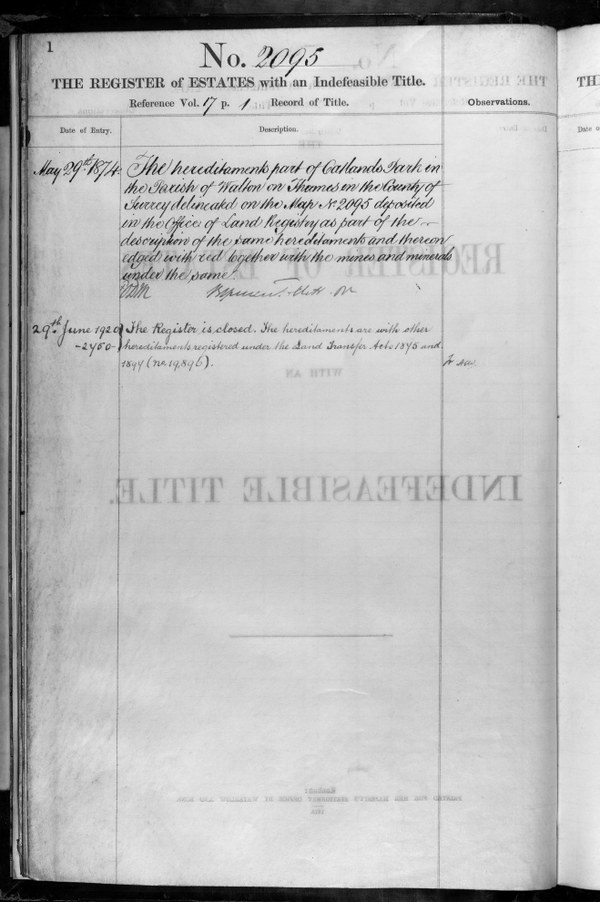 1
No. 2095
THE REGISTER of ESTATES with an Indefeasible Title.
Reference Vol. 17 p. 1 Record of Title.
Observations.
Date of Entry.
Description.
May 29th 1874.
The hereditaments part of Oatlands Park in
the Parish of Walton on Thames in the County of
Surrey delineated on the Map No 2095 deposited
in the Office of Land Registry as part of the
description of the same hereditaments and thereon
edged with red together with the mines and minerals
under the same.
29th June 1920
-2450-
The Register is closed. The hereditaments are with other
hereditaments registered under the Land Transfer Acts 1875 and
1897 (no. 19,896).
REGISTER OF E
WITH AN
INDEFEASIBLE TITLE.
London:
PRINTED FOR HER MAJESTY'S STATIONERY OFFICE BY WATERLOW AND SONS
TH
Date o